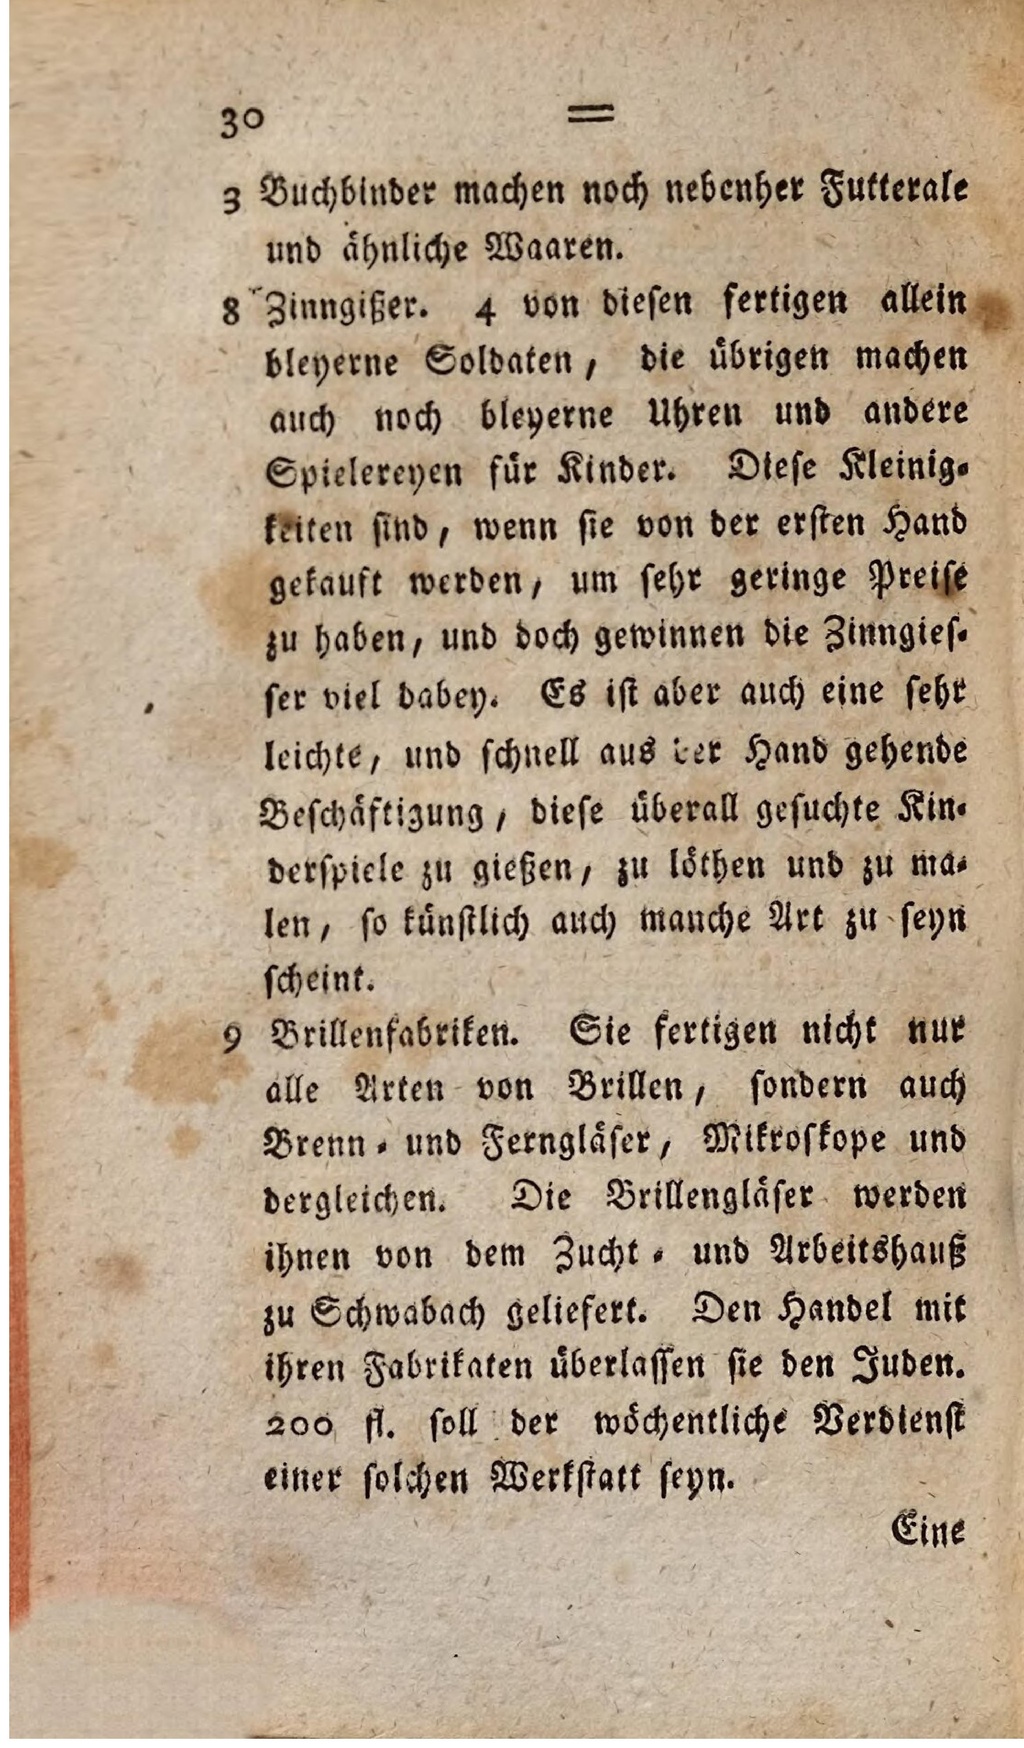 30 =
3 Buchbinder machen noch nebenher Futterale
und ähnliche Waaren.
8 Zinngißer. 4 von diesen fertigen allein
bleyerne Soldaten, die übrigen machen
auch noch bleyerne Uhren und andere
Spielereyen für Kinder. Diese Kleinig-
keiten sind, wenn sie von der ersten Hand
gekauft werden, um sehr geringe Preise
zu haben, und doch gewinnen die Zinngies-
ser viel dabey. Es ist aber auch eine sehr
leichte, und schnell aus der Hand gehende
Beschäftigung, diese überall gesuchte Kin-
derspiele zu gießen, zu löthen und zu ma-
len, so künstlich auch manche Art zu seyn
scheint.
9 Brillenfabriken. Sie fertigen nicht nur
alle Arten von Brillen, sondern auch
Brenn- und Ferngläser, Mikroskope und
dergleichen. Die Brillengläser werden
ihnen von dem Zucht- und Arbeitshauß
zu Schwabach geliefert. Den Handel mit
ihren Fabrikaten überlassen sie den Juden.
200 fl. soll der wöchentliche Verdienst
einer solchen Werkstatt seyn.
Eine